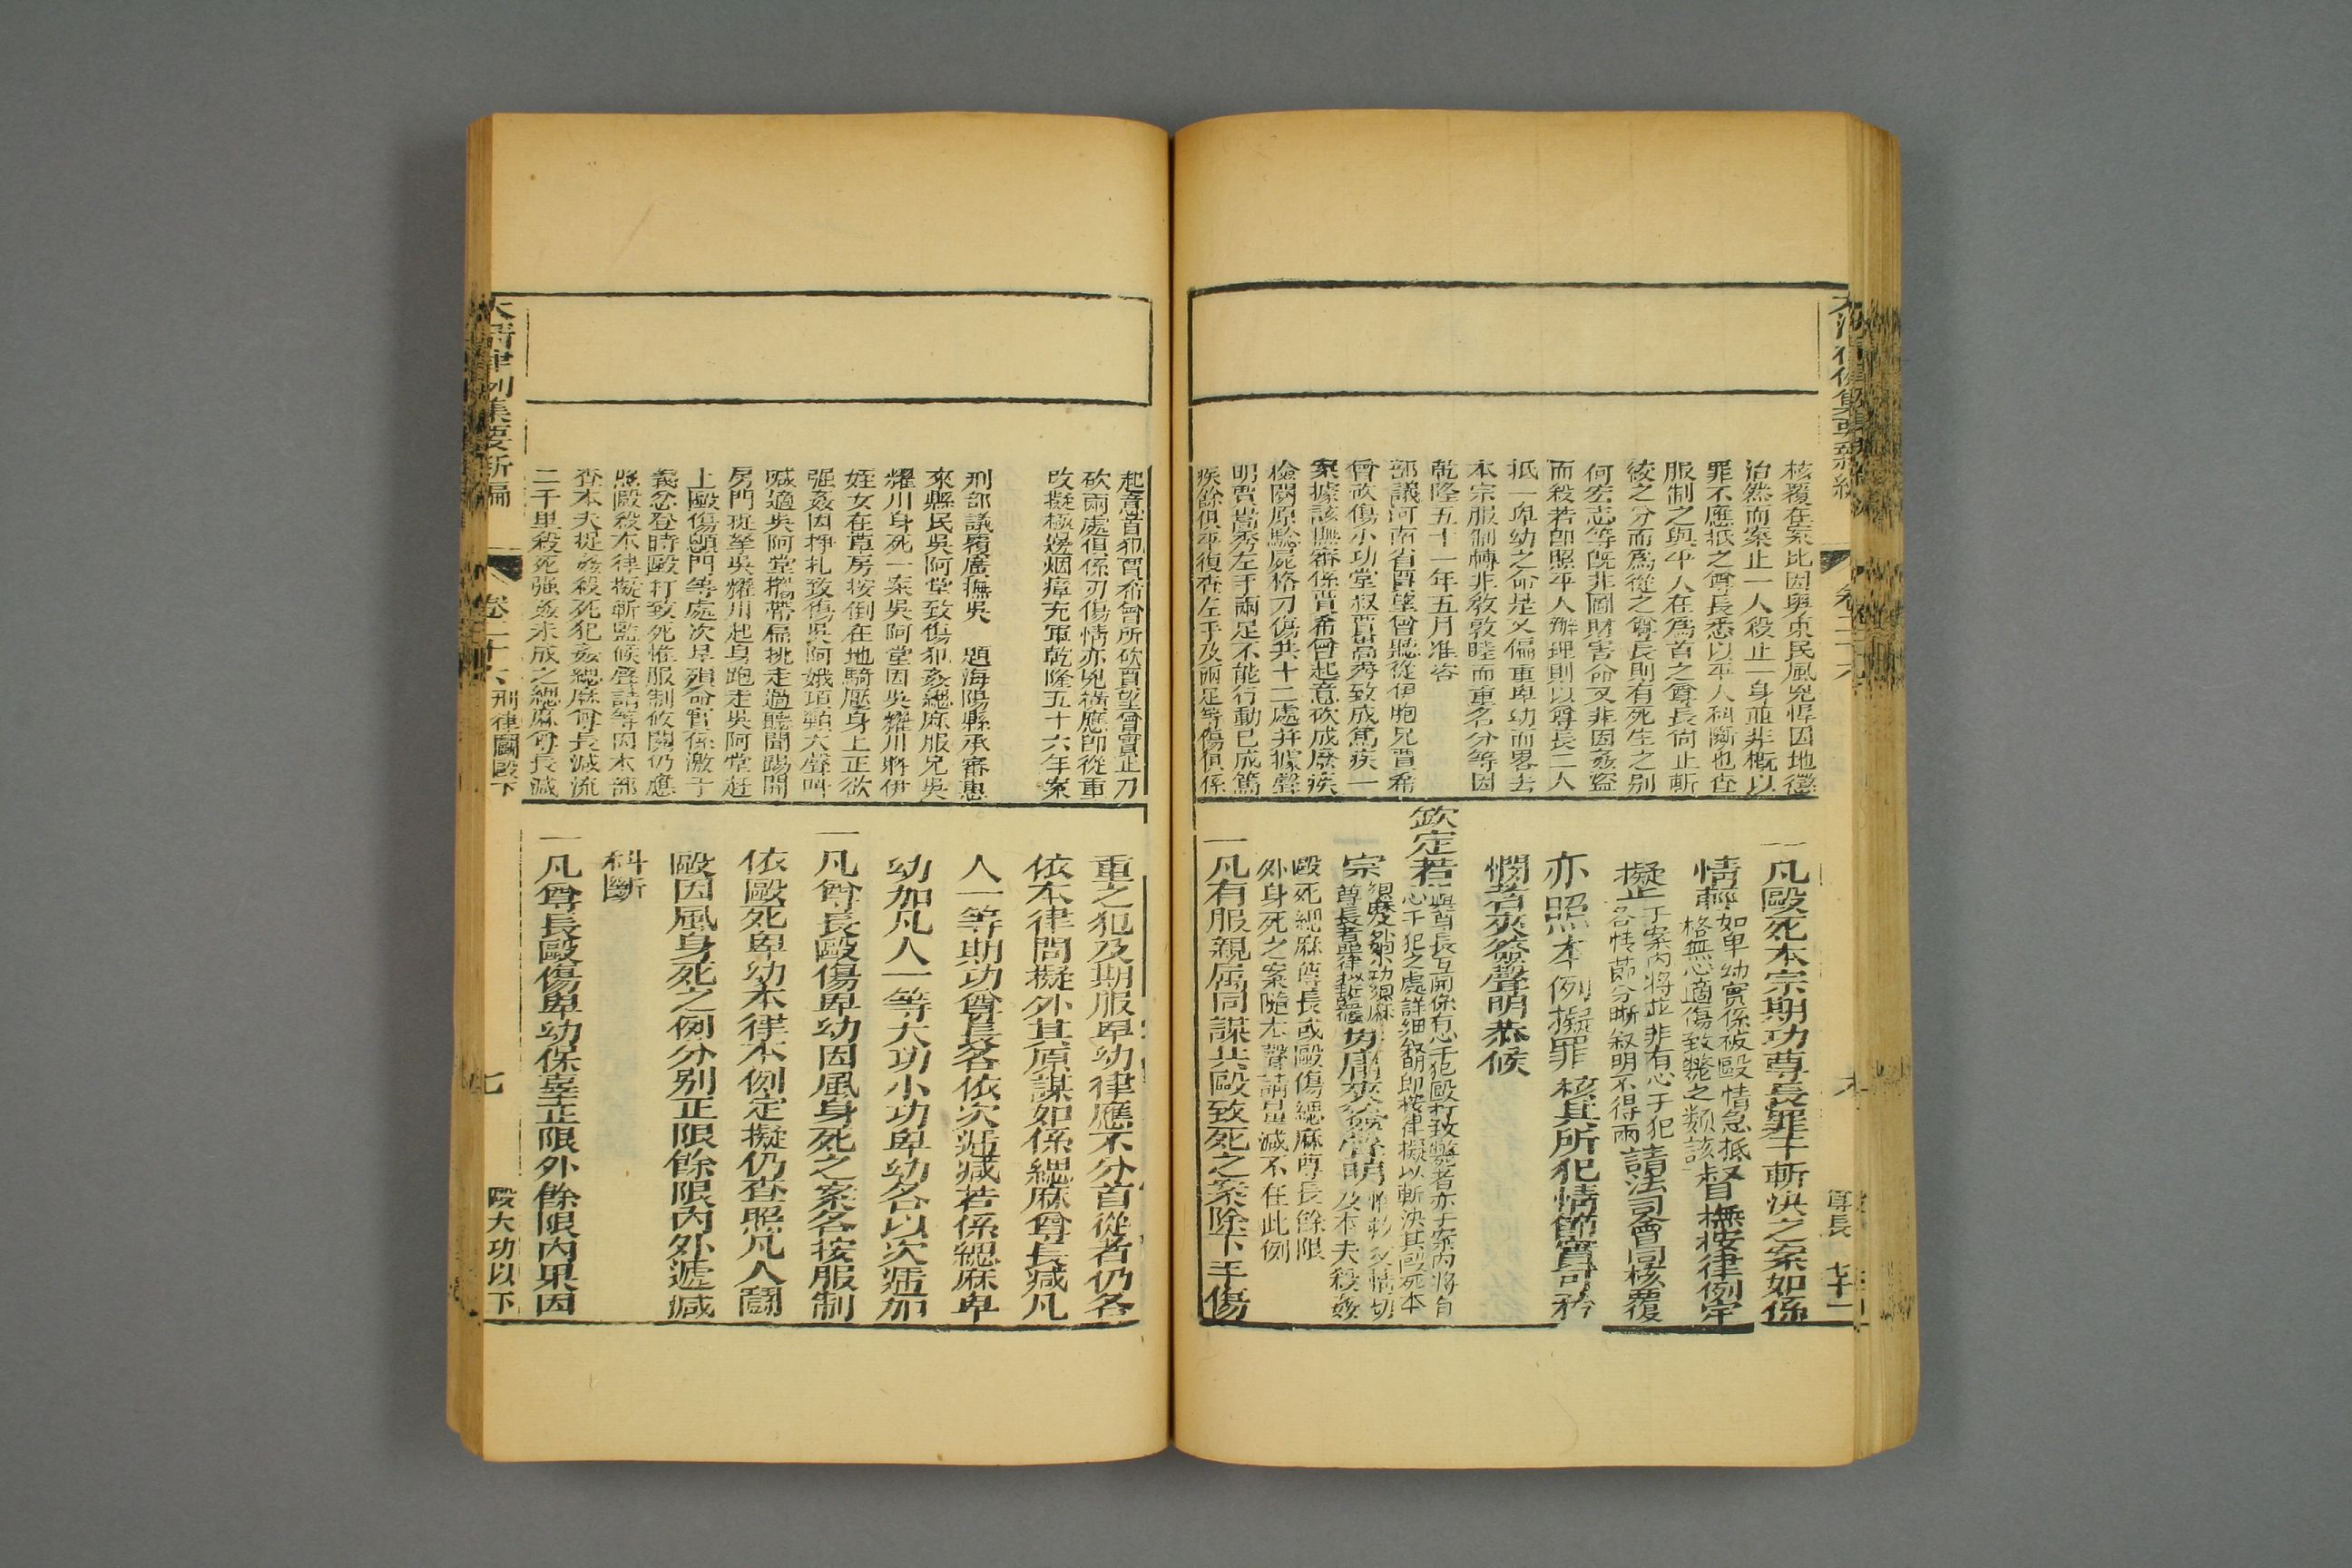 核覆在案比因與東民風兇悍因地懲
治然而案止一人殺止一身並非概以
罪不應抵之尊長悉以平人科斷也查
服制之與平人在為首之尊長尚止斬
絞之分而為從之尊長則有死生之别
何宏志等既非圖財害命又非因姦盜
而殺若卽照平人辦理則以尊長二人
抵一卑幼之命是又偏重卑幼而畧去
本宗服制轉非敎敦睦而重名分等因
乾隆五十一年五月准咨
部議河南省賈望曾聽從伊胞兄賈希
曾砍傷小功堂叔賈嵩秀致成篤疾一
案據該撫審係賈希曾起意砍成廢疾
檢閱原騐屍格刀傷共十二處并據聲
明賈嵩秀左手兩足不能行動已成篤
疾餘俱平復查左手及兩足等傷俱係
一凡毆死本宗期功尊長罪干斬決之案如係
情輕如卑幼實係被毆情急抵
格無心適傷致斃之類該督撫按律例定
擬止于案內將並非有心干犯
各情節分晰敘明不得兩請法司會同核覆
亦照本例擬罪核其所犯情節實可矜
憫者夾簽聲明恭候
欽定若與尊長互鬭係有心干犯毆打致斃者亦于案內將有
心干犯之處詳細敘明卽按律擬以斬決其毆死本
宗緦麻及外姻小功緦麻
尊長者照律擬斬監候毋庸夾簽聲明惟救父情切
及本夫殺姦
毆死緦麻尊長或毆傷緦麻尊長餘限
外身死之案隨本聲請量減不在此例
一凡有服親属同謀共毆致死之案除下手傷
尊長 七十一
起意首犯賈希曾所砍賈望曾實止刀
砍兩處俱係刃傷情亦兇橫應卽從重
改擬極邊烟瘴充軍乾隆五十六年案
刑部議覆廣撫吳 題海陽縣承審惠
來縣民吳阿堂致傷犯姦緦麻服兄吳
耀川身死一案吳阿堂因吳耀川將伊
姪女在草房按倒在地騎壓身上正欲
强姦因掙扎致傷吳阿娥項頬大聲叫
喊適吳阿堂攜帶扁挑走過聽聞踢開
房門斑拏吳耀川起身跑走吳阿堂赶
上毆傷顖門等處次早殞命官係激于
義忿登時毆打致死惟服制攸關仍應
照毆殺本律擬斬監候聲請等因本部
查本夫捉姦殺死犯姦緦麻尊長減流
二千里殺死强姦未成之緦麻尊長減
重之犯及期服卑幼律應不分首從者仍各
依本律問擬外其原謀如係緦麻尊長減凡
人一等期功尊長各依次遞減若係緦麻卑
幼加凡人一等大功小功卑幼各以次遞加
一凡尊長毆傷卑幼因風身死之案各按服制
依毆死卑幼本律本例定擬仍查照凡人鬪
毆因風身死之例分别正限餘限內外遞減
科斷
一凡尊長毆傷卑幼保辜正限外餘限內果因
大清律例集要新編 卷二十六 刑律鬪毆下 七 毆大功以下